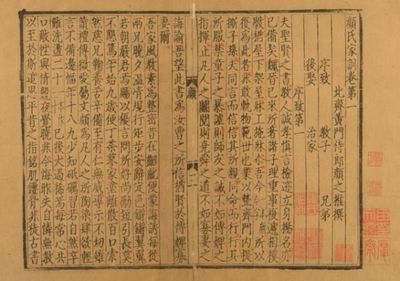 顏氏家訓卷第一
北齊黃門侍郎顏之推撰
序致 教子 兄弟
後娶 治家
序致第一
夫聖賢之書教人誠孝慎言檢迹立身揚名亦
已備矣魏晉已來所著諸子理重事複遞相模
斆猶屋下架屋牀上施牀你吾今所以
復為此者非敢軌物範世也業以整齊門內提
撕子孫夫同言而信信其所親同命而行行其
所服禁童子之暴謔則師友之誡不如傅婢之
指揮止凡人之鬭鬩則堯舜之道不如寡妻之
誨諭吾望此書為汝曹之所信猶賢於傅婢寡
妻爾
吾家風教素為整密昔在齠齔便蒙誨誘每從
兩兄曉夕溫凊規行矩步安辭定色鏘鏘翼翼
若朝嚴君焉賜以優言問所好尚勵短引長莫
不懇篤年始九歲便丁荼蓼家塗離散百口索
然慈兄鞠養苦辛備至有仁無威導示不切雖
讀禮傳微愛屬文頗為凡人之所陶染肆欲輕
言不備邊幅年十八九少知砥礪習若自然卒
難洗盪二十已後大過稀焉每常心共
口敵性與情競夜覺曉非今悔昨失自憐無教
以至於斯追思平昔之指銘肌鏤骨非徒古書